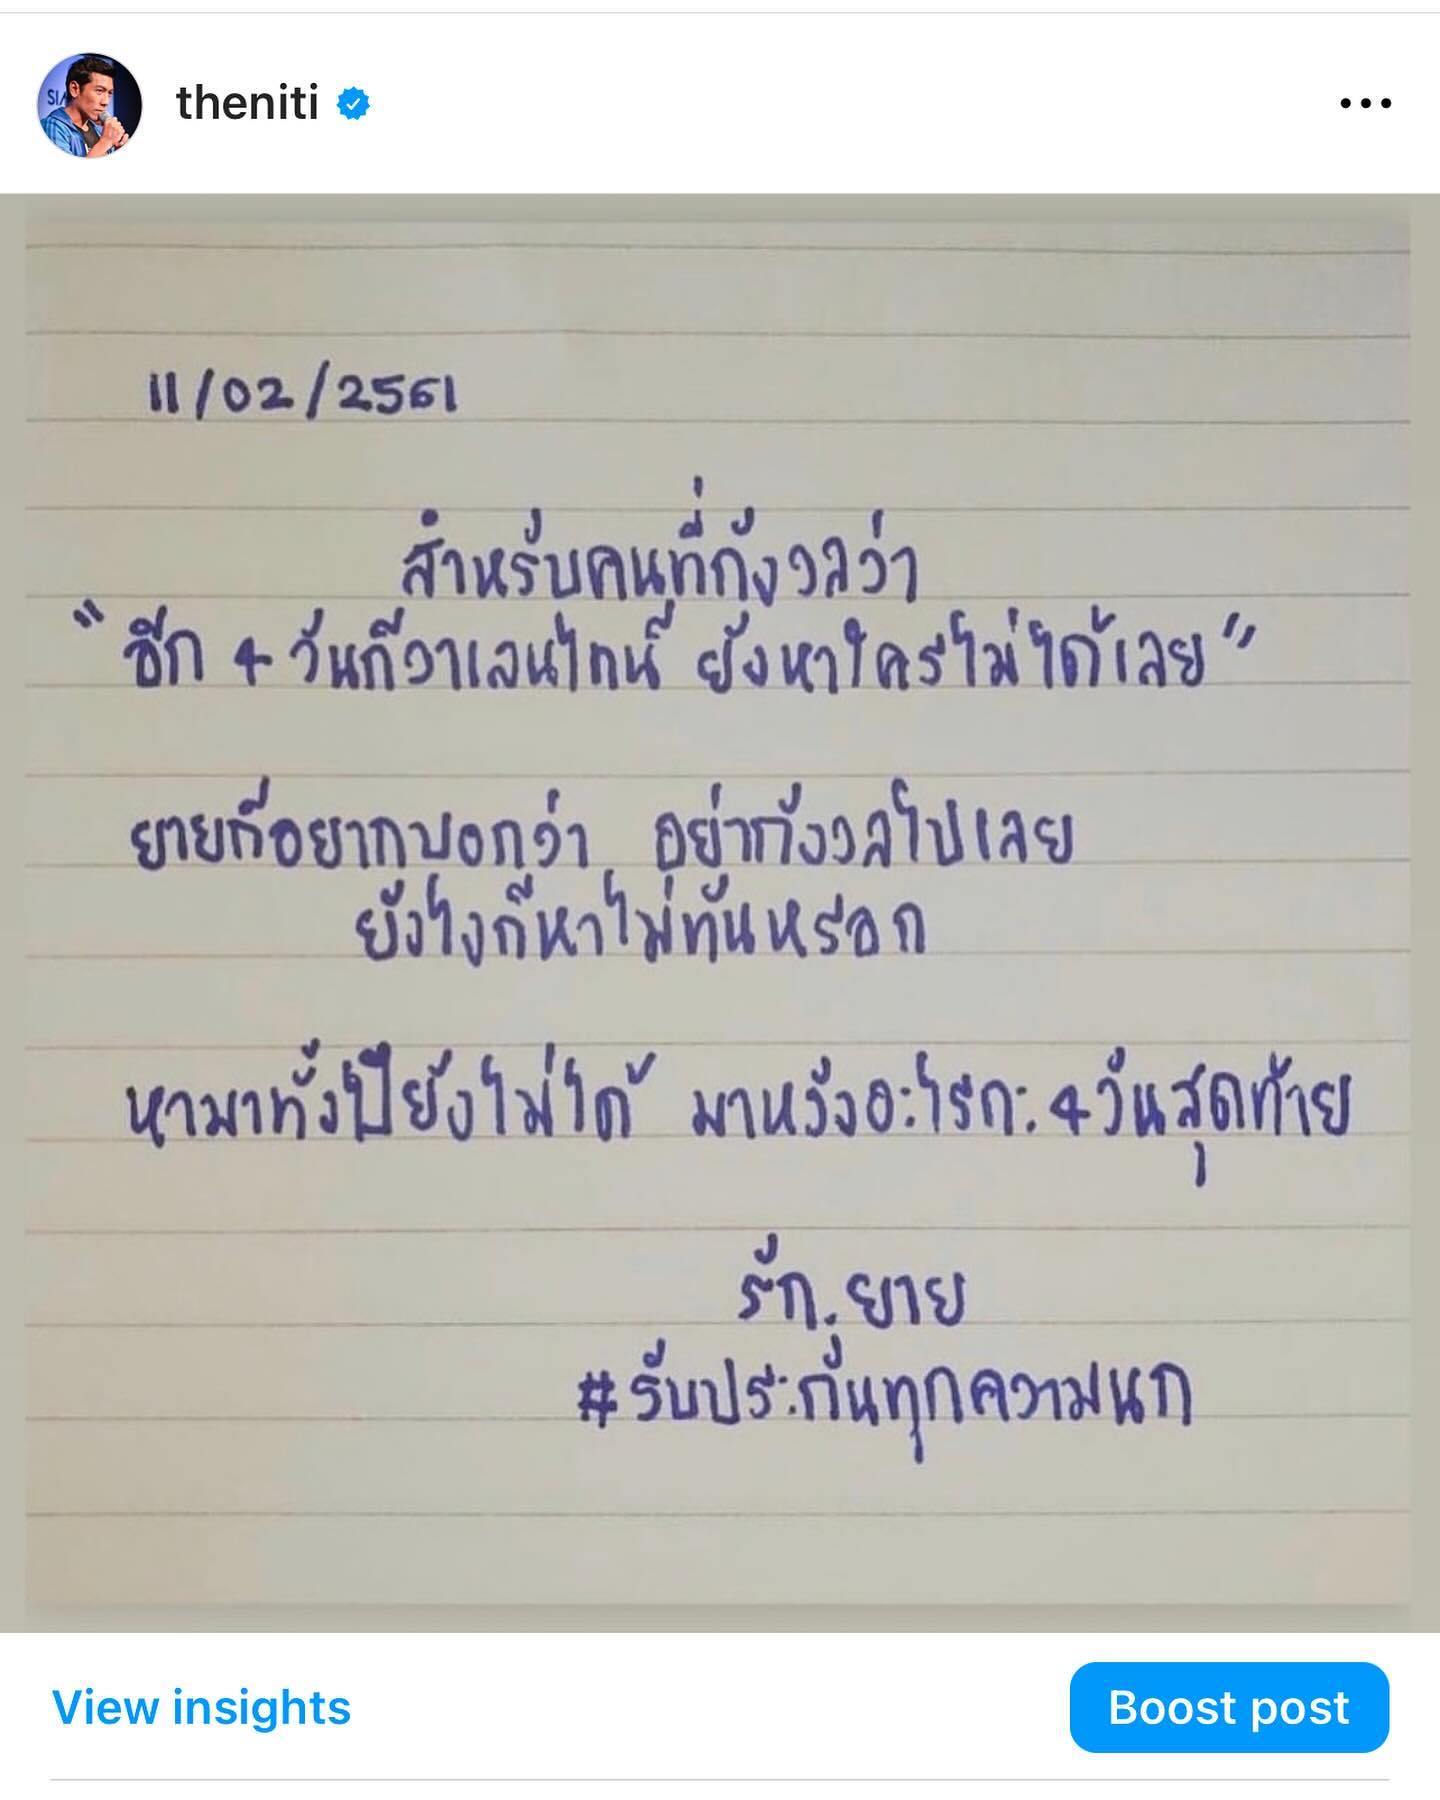 theniti
11/02/2561
สำหรับคนที่กังวลว่า
"อีก 4 วันก็วาเลนไทน์ ยังหาใครไม่ได้เลย"
ยายก็อยากบอกว่า อย่ากังวลไปเลย
ยังไงก็หาไม่ทันหรอก
หามาทั้งปียังไม่ได้ มาหวังอะไรกะ 4 วันสุดท้าย
รัก, ยาย
#รับประกันทุกความนก
View insights
Boost post